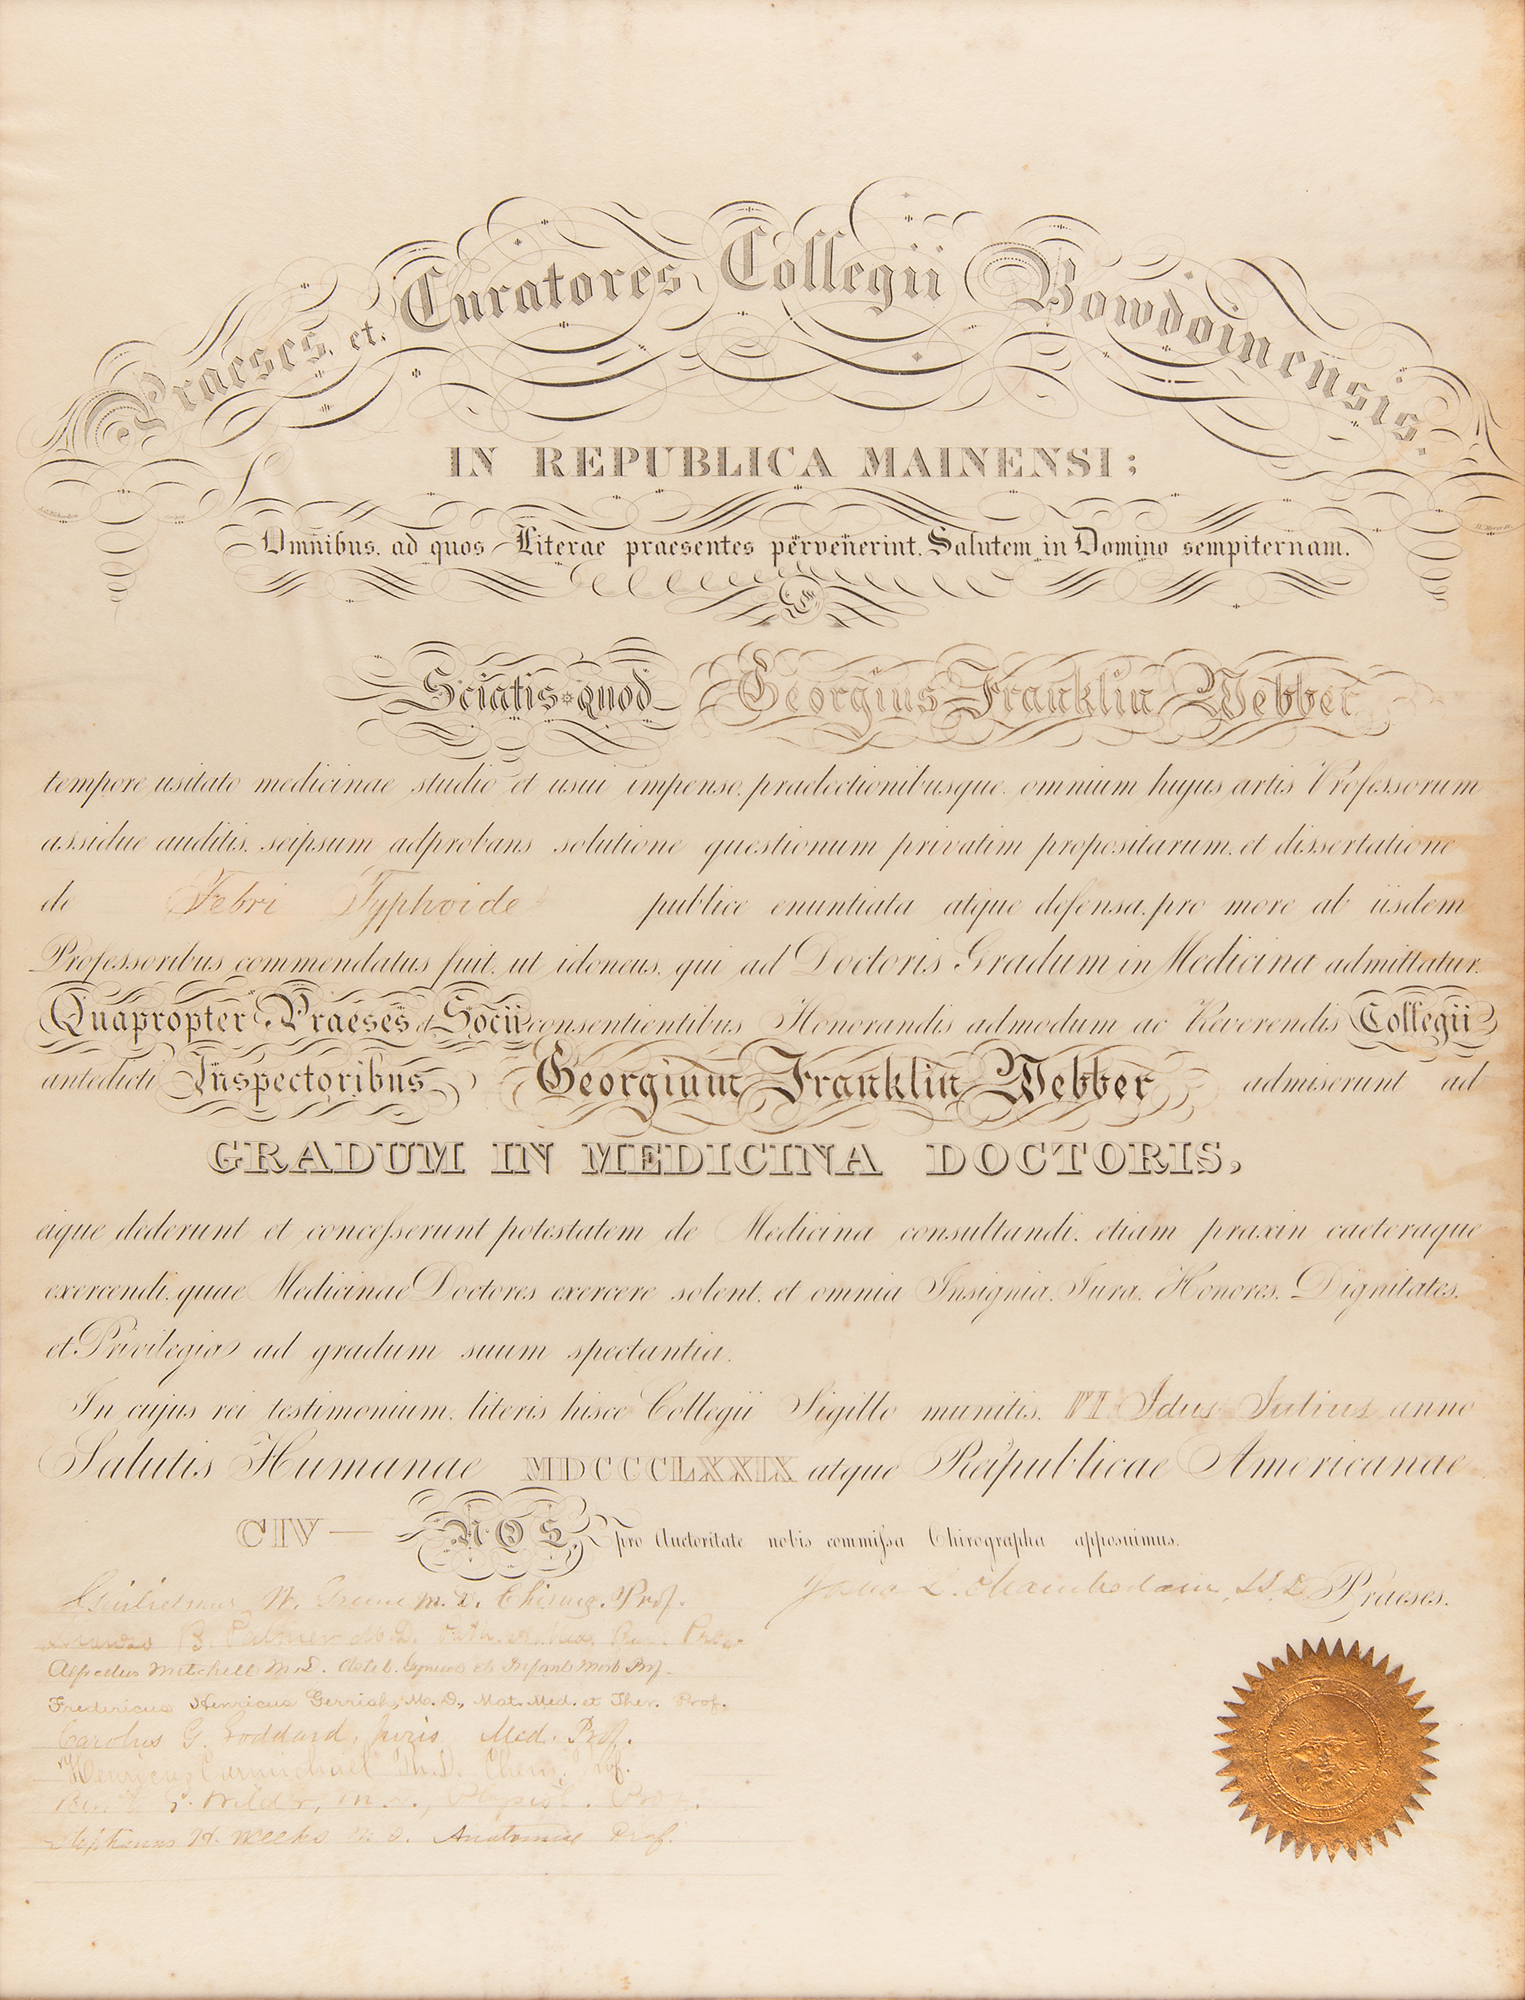 Praeses et Curatores Collegii Bowdoinensis.
IN REPUBLICA MAINENSI;
Omnibus, ad quos Literae praesentes pervenerint, Salutem in Domino sempiternam.
Sciatis quod Georgius Franklin Webber
tempore usitato medicinae studio et usui impenso, praelectionibusque omnium hujus artis Professorum
assidue auditis, seipsum adprobans solutione questionum privatim propositarum, et dissertatione
de Febri Typhoide publice enuntiata atque defensa, pro more ab iisdem
Professoribus commendatus fuit, ut idoneus, qui ad Doctoris Gradum in Medicina admittatur,
Quapropter Praeses et Socii consentientibus Honorandis admodum ac Reverendis Collegii
antedicti Inspectoribus Georgium Franklin Webber admiserunt ad
GRADUM IN MEDICINA DOCTORIS,
eique dederunt et concesserunt potestatem de Medicina consultandi, etiam praxin caeteraque
exercendi, quae Medicinae Doctores exercere solent, et omnia Insignia, Jura, Honores, Dignitates,
et Privilegia ad gradum suum spectantia.
In cujus rei testimonium, literis hisce Collegii Sigillo munitis, VI Idus Julius anno
Salutis Humanae MDCCCLXXIX atque Reipublicae Americanae
CIV — NOS, pro Auctoritate nobis commissa Chirographa apposuimus.
Guilielmus W. Greene M.D. Chirurg. Prof.
Joshua L. Chamberlain, LL.D. Praeses.
B. Palmer M.D. Path. et Med. Prac. Prof.
Alfredus Mitchell M.D. Obstet. Gynaec et Infant Morb Prof.
Fredericus Henricus Gerrish, M.D., Mat. Med. et Ther. Prof.
Carolus G. Goddard, Juris Med. Prof.
Henricus Carmichael Ph.D. Chem. Prof.
G. Wilder, M.D., Physiol. Prof.
Stephanus H. Weeks M.D. Anatomiae Prof.